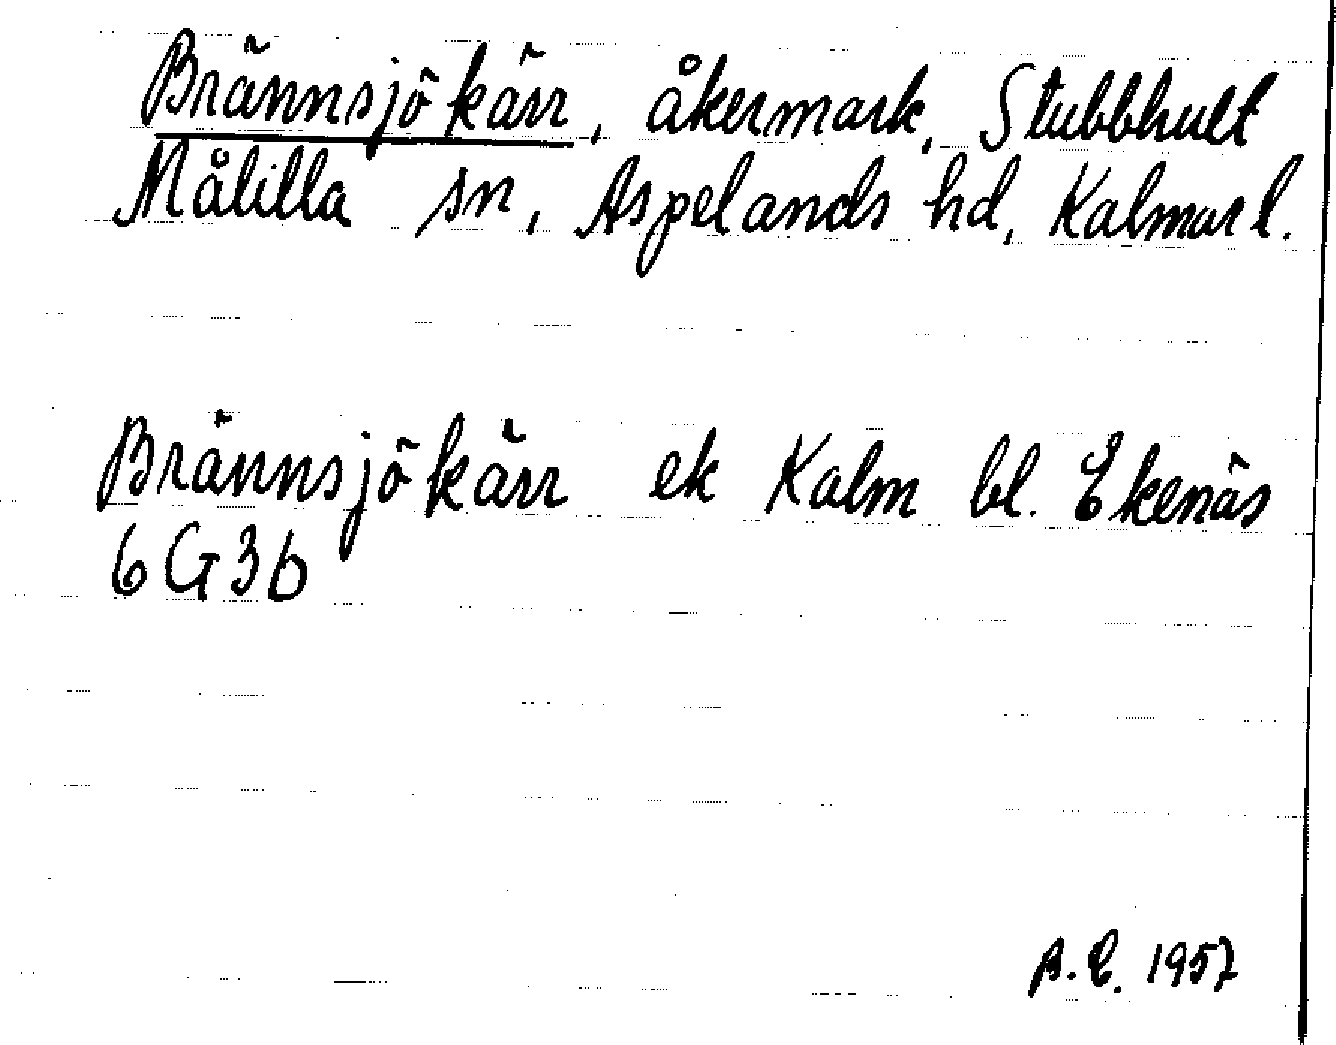 Brännsjökärr, åkermark, Stubbhult
Målilla sn, Aspelands hd, Kalmar l.
Brännsjökärr ek Kalm bl. Ekenäs
6G3b
1957